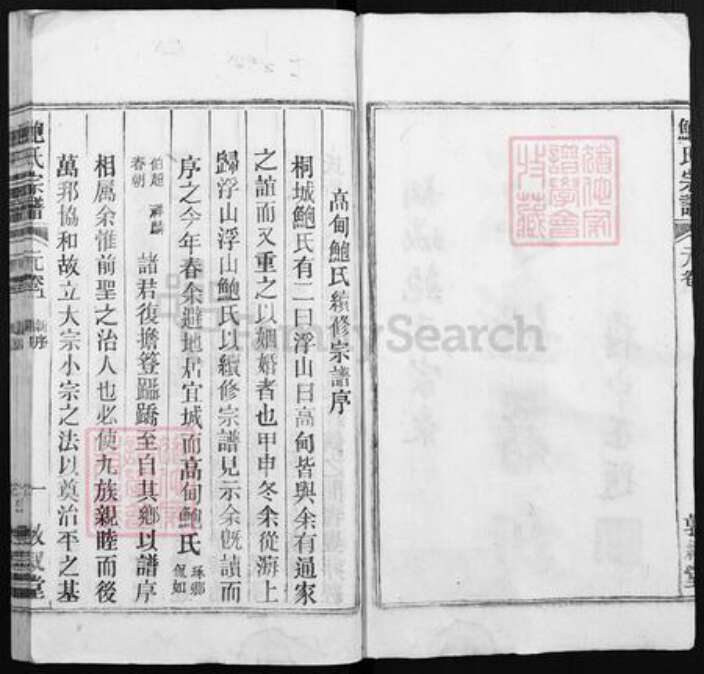 鮑氏宗譜
元卷
敦敘堂
高甸鮑氏續修宗譜序
桐城鮑氏有二曰浮山曰高甸皆與余有通家
之誼而又重之以姻婚者也甲申冬余從海上
歸浮山浮山鮑氏以續修宗譜見示余旣讀而
序之今年春余避地居宜城而高甸鮑氏
伯超 祥麟
春朝
諸君復擔簦躡蹻至自其鄉以譜序
相屬余惟前聖之治人也必使九族親睦而後
萬邦協和故立大宗小宗之法以奠治平之基
鮑氏宗譜
元卷
新序
一
敦敘堂
FamilySearch